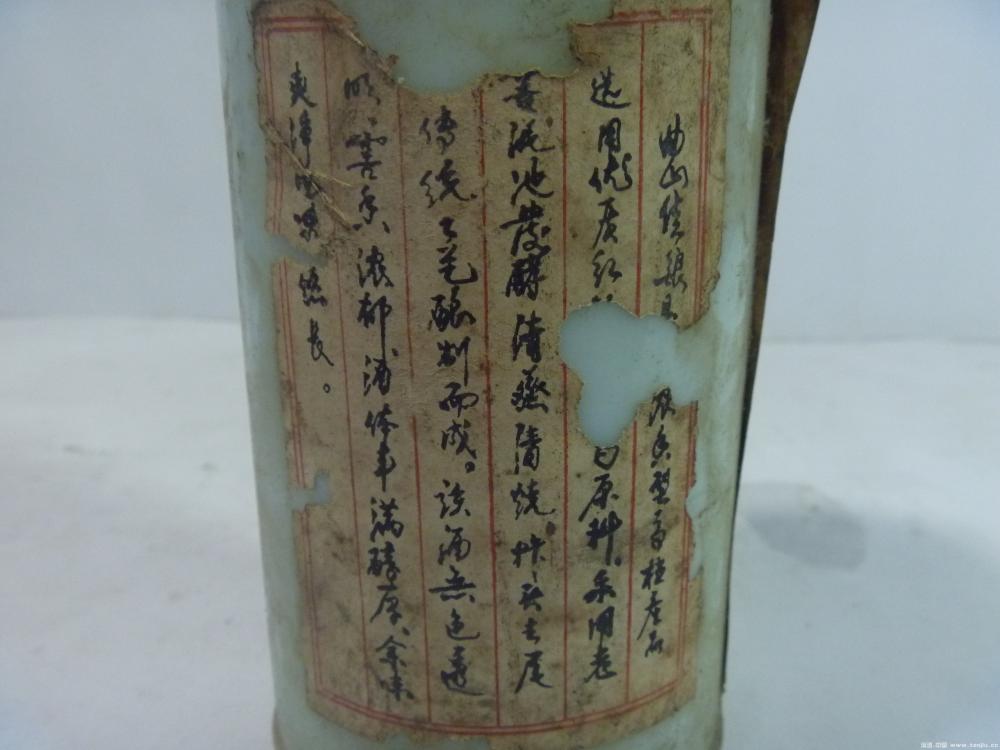 曲山佳酿 浓香型 高档产品
选用优质红 为原料。采用老
窖泥池发酵、清蒸清烧、掐头去尾
传统工艺酿制而成。该酒无色透
明、窖香浓郁、酒体丰满醇厚、余味
爽净、回味悠长。